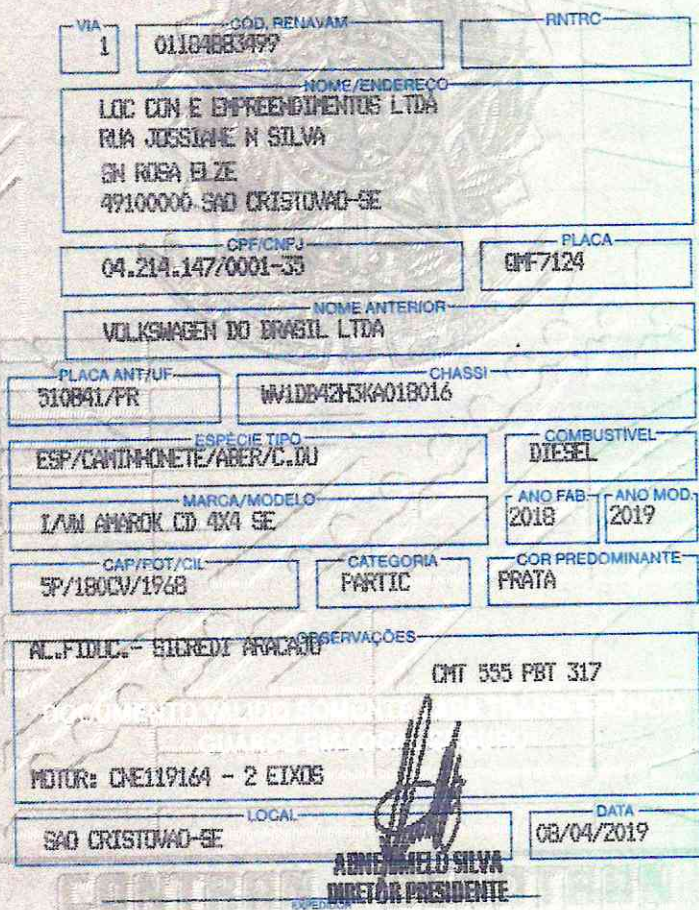 VIA
1
COD. RENAVAM
01184883499
RNTRC
NOME/ENDEREÇO
LOC CON E EMPREENDIMENTOS LTDA
RUA JOSSIANE N SILVA
SN ROSA ELZE
49100000 SAO CRISTOVAO-SE
CPF/CNPJ
04.214.147/0001-35
PLACA
QMF7124
NOME ANTERIOR
VOLKSWAGEN DO BRASIL LTDA
PLACA ANT/UF
510841/PR
CHASSI
WV1DB42H3KA018016
ESPÉCIE TIPO
ESP/CAMINHONETE/ABER/C.DU
COMBUSTÍVEL
DIESEL
MARCA/MODELO
I/VW AMAROK CD 4X4 SE
ANO FAB.
2018
ANO MOD.
2019
CAP/POT/CIL
5P/180CV/1968
CATEGORIA
PARTIC
COR PREDOMINANTE
PRATA
OBSERVAÇÕES
AL.FIDUC.- SICREDI ARACAJU
CMT 555 PBT 317
MOTOR: CNE119164 - 2 EIXOS
LOCAL
SAO CRISTOVAO-SE
DATA
08/04/2019
MELO SILVA
DIRETOR PRESIDENTE
EXPEDIDOR